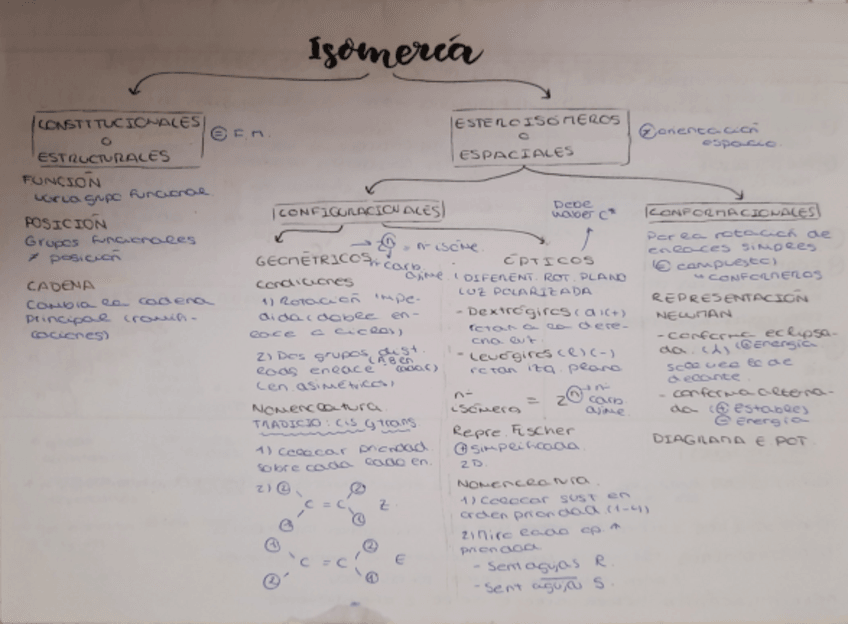 Isomería
CONSTITUCIONALES
O
ESTRUCTURALES
= F.M.
FUNCIÓN
varia grupo funcional
POSICIÓN
Grupos funcionales
≠ posición
CADENA
Cambia la cadena
principal (ramifi-
caciones)
ESTEREOISÓMEROS
O
ESPACIALES
≠ orientación
espacio.
CONFIGURACIONALES
→ 2ⁿ = nº isóme.
nº carb
asime.
GEOMÉTRICOS
Condiciones
1) Rotación impe-
dida (doble en-
lace o ciclos)
2) Dos grupos dist.
cada enlace
(en asimétricos)
Nomenclatura
TRADICIO: cis y trans
1) Colocar prioridad
sobre cada lado en.
2) ② ②
C = C Z
① ①
① ②
C = C E
② ①
Debe
haber C*
ÓPTICOS
(DIFERENT. ROT. PLANO
LUZ POLARIZADA
- Dextrógiros (d)(+)
rotan a la dere-
cha luz.
- Levógiros (l) (-)
rotan izq. plano
nº
isómero = 2ⁿ → nº
carb
asime.
Repre. Fischer
+ simplificada
2D.
Nomenclatura.
1) Colocar sust en
orden prioridad (1-4)
2) Mire lado op. ↑
prioridad
- Sent agujas R.
- Sent agujas S.
CONFORMACIONALES
Por la rotación de
enlaces simples
(= compuesto)
↳ CONFÓMEROS
REPRESENTACIÓN
NEWMAN
- Conforma eclipsa-
da. (+ Energía
solo veo lo de
delante.
- conforma alterna-
da (+ estables)
- Energía
DIAGRAMA E POT